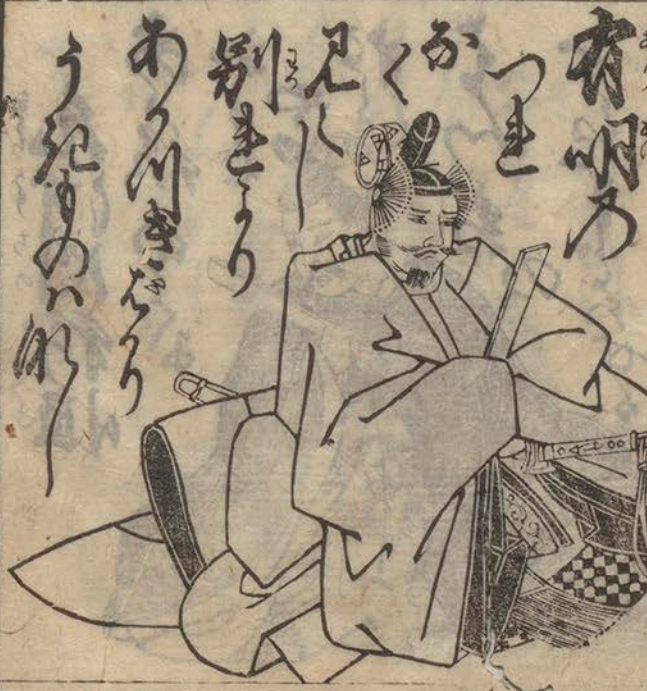 有明乃
つれ
なく
見へし
別れより
あかつきばかり
うきものハなし